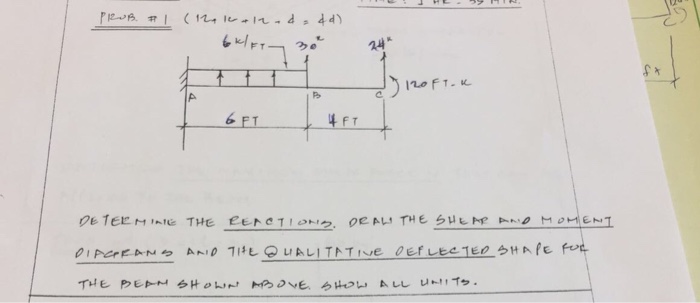 PROB. #1 (12+16+12
6 k/FT 30k 24k
120 FT-K
A B C
6 FT 4 FT
DETERMINE THE REACTIONS. DRAW THE SHEAR AND MOMENT
DIAGRAMS AND THE QUALITATIVE DEFLECTED SHAPE FOR
THE BEAM SHOWN ABOVE. SHOW ALL UNITS.